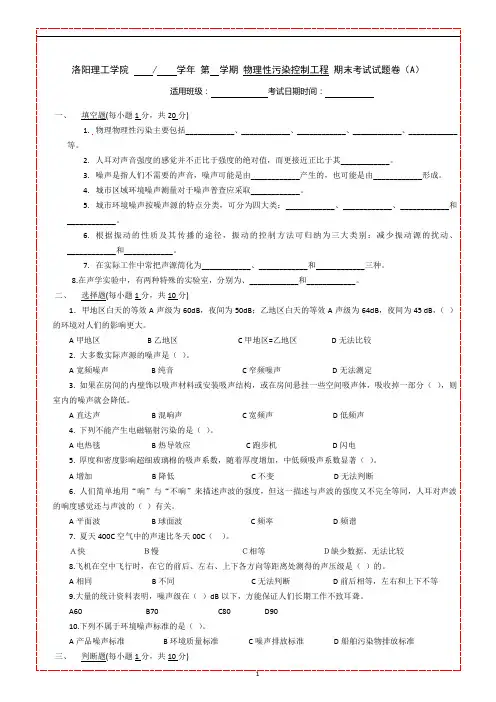 洛阳理工学院 ____/____学年 第__学期 物理性污染控制工程 期末考试试题卷（A）
适用班级：____________ 考试日期时间：__________
一、 填空题(每小题 1 分，共 20 分)
1. 物理物理性污染主要包括____________、____________、____________、____________、____________
等。
2. 人耳对声音强度的感觉并不正比于强度的绝对值，而更接近正比于其____________。
3. 噪声是指人们不需要的声音，噪声可能是由____________产生的，也可能是由____________形成。
4. 城市区域环境噪声测量对于噪声普查应采取____________。
5. 城市环境噪声按噪声源的特点分类，可分为四大类：____________、____________、____________和
____________。
6. 根据振动的性质及其传播的途径，振动的控制方法可归纳为三大类别：减少振动源的扰动、
____________和____________。
7. 在实际工作中常把声源简化为____________、____________和____________三种。
8.在声学实验中，有两种特殊的实验室，分别为、____________和____________。
二、 选择题(每小题 1 分，共 10 分)
1. 甲地区白天的等效 A 声级为 60dB，夜间为 50dB；乙地区白天的等效 A 声级为 64dB，夜间为 45 dB，（ ）
的环境对人们的影响更大。
A 甲地区 B 乙地区 C 甲地区=乙地区 D 无法比较
2. 大多数实际声源的噪声是（ ）。
A 宽频噪声 B 纯音 C 窄频噪声 D 无法测定
3. 如果在房间的内壁饰以吸声材料或安装吸声结构，或在房间悬挂一些空间吸声体，吸收掉一部分（ ），则
室内的噪声就会降低。
A 直达声 B 混响声 C 宽频声 D 低频声
4. 下列不能产生电磁辐射污染的是（ ）。
A 电热毯 B 热导效应 C 跑步机 D 闪电
5. 厚度和密度影响超细玻璃棉的吸声系数，随着厚度增加，中低频吸声系数显著（ ）。
A 增加 B 降低 C 不变 D 无法判断
6. 人们简单地用“响”与“不响”来描述声波的强度，但这一描述与声波的强度又不完全等同，人耳对声波
的响度感觉还与声波的（ ）有关。
A 平面波 B 球面波 C 频率 D 频谱
7. 夏天 400C 空气中的声速比冬天 00C（ ）。
A 快 B 慢 C 相等 D 缺少数据，无法比较
8.飞机在空中飞行时，在它的前后、左右、上下各方向等距离处测得的声压级是（ ）的。
A 相同 B 不同 C 无法判断 D 前后相等，左右和上下不等
9.大量的统计资料表明，噪声级在（ ）dB 以下，方能保证人们长期工作不致耳聋。
A60 B70 C80 D90
10.下列不属于环境噪声标准的是（ ）。
A 产品噪声标准 B 环境质量标准 C 噪声排放标准 D 船舶污染物排放标准
三、 判断题(每小题 1 分，共 10 分)
1